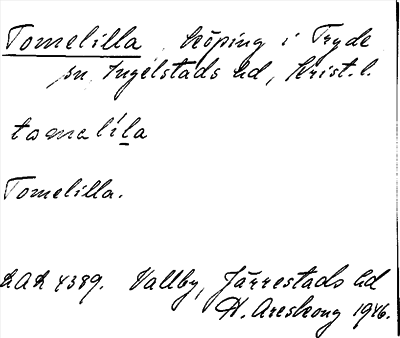 Tomelilla köping i Tryde
sn, Ingelstads hd, Krist. l.
tomelíla
Tomelilla.
4389. Vallby, Järrestads hd
H. Areskoug 1946.